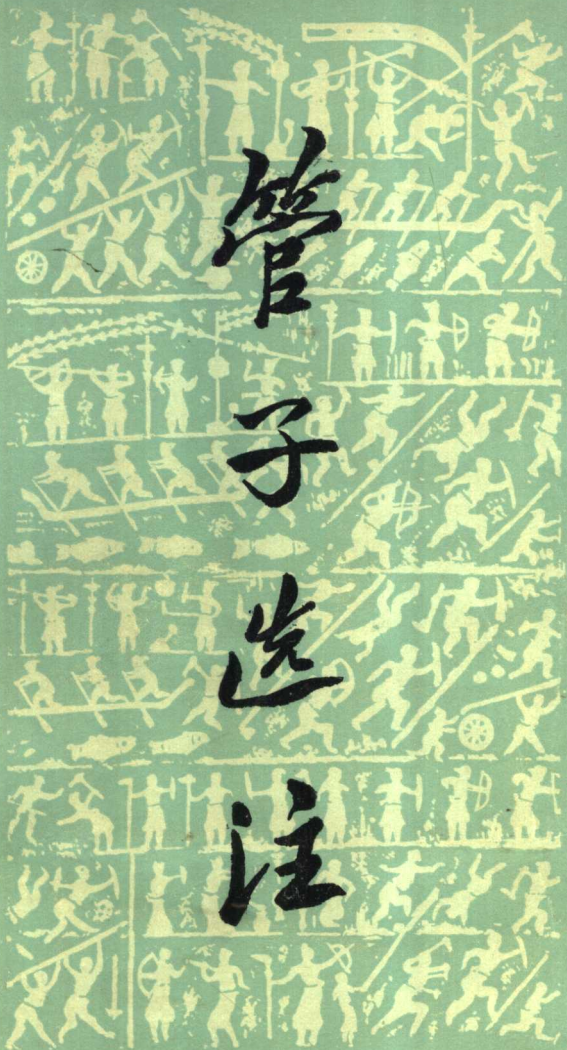 管子选注